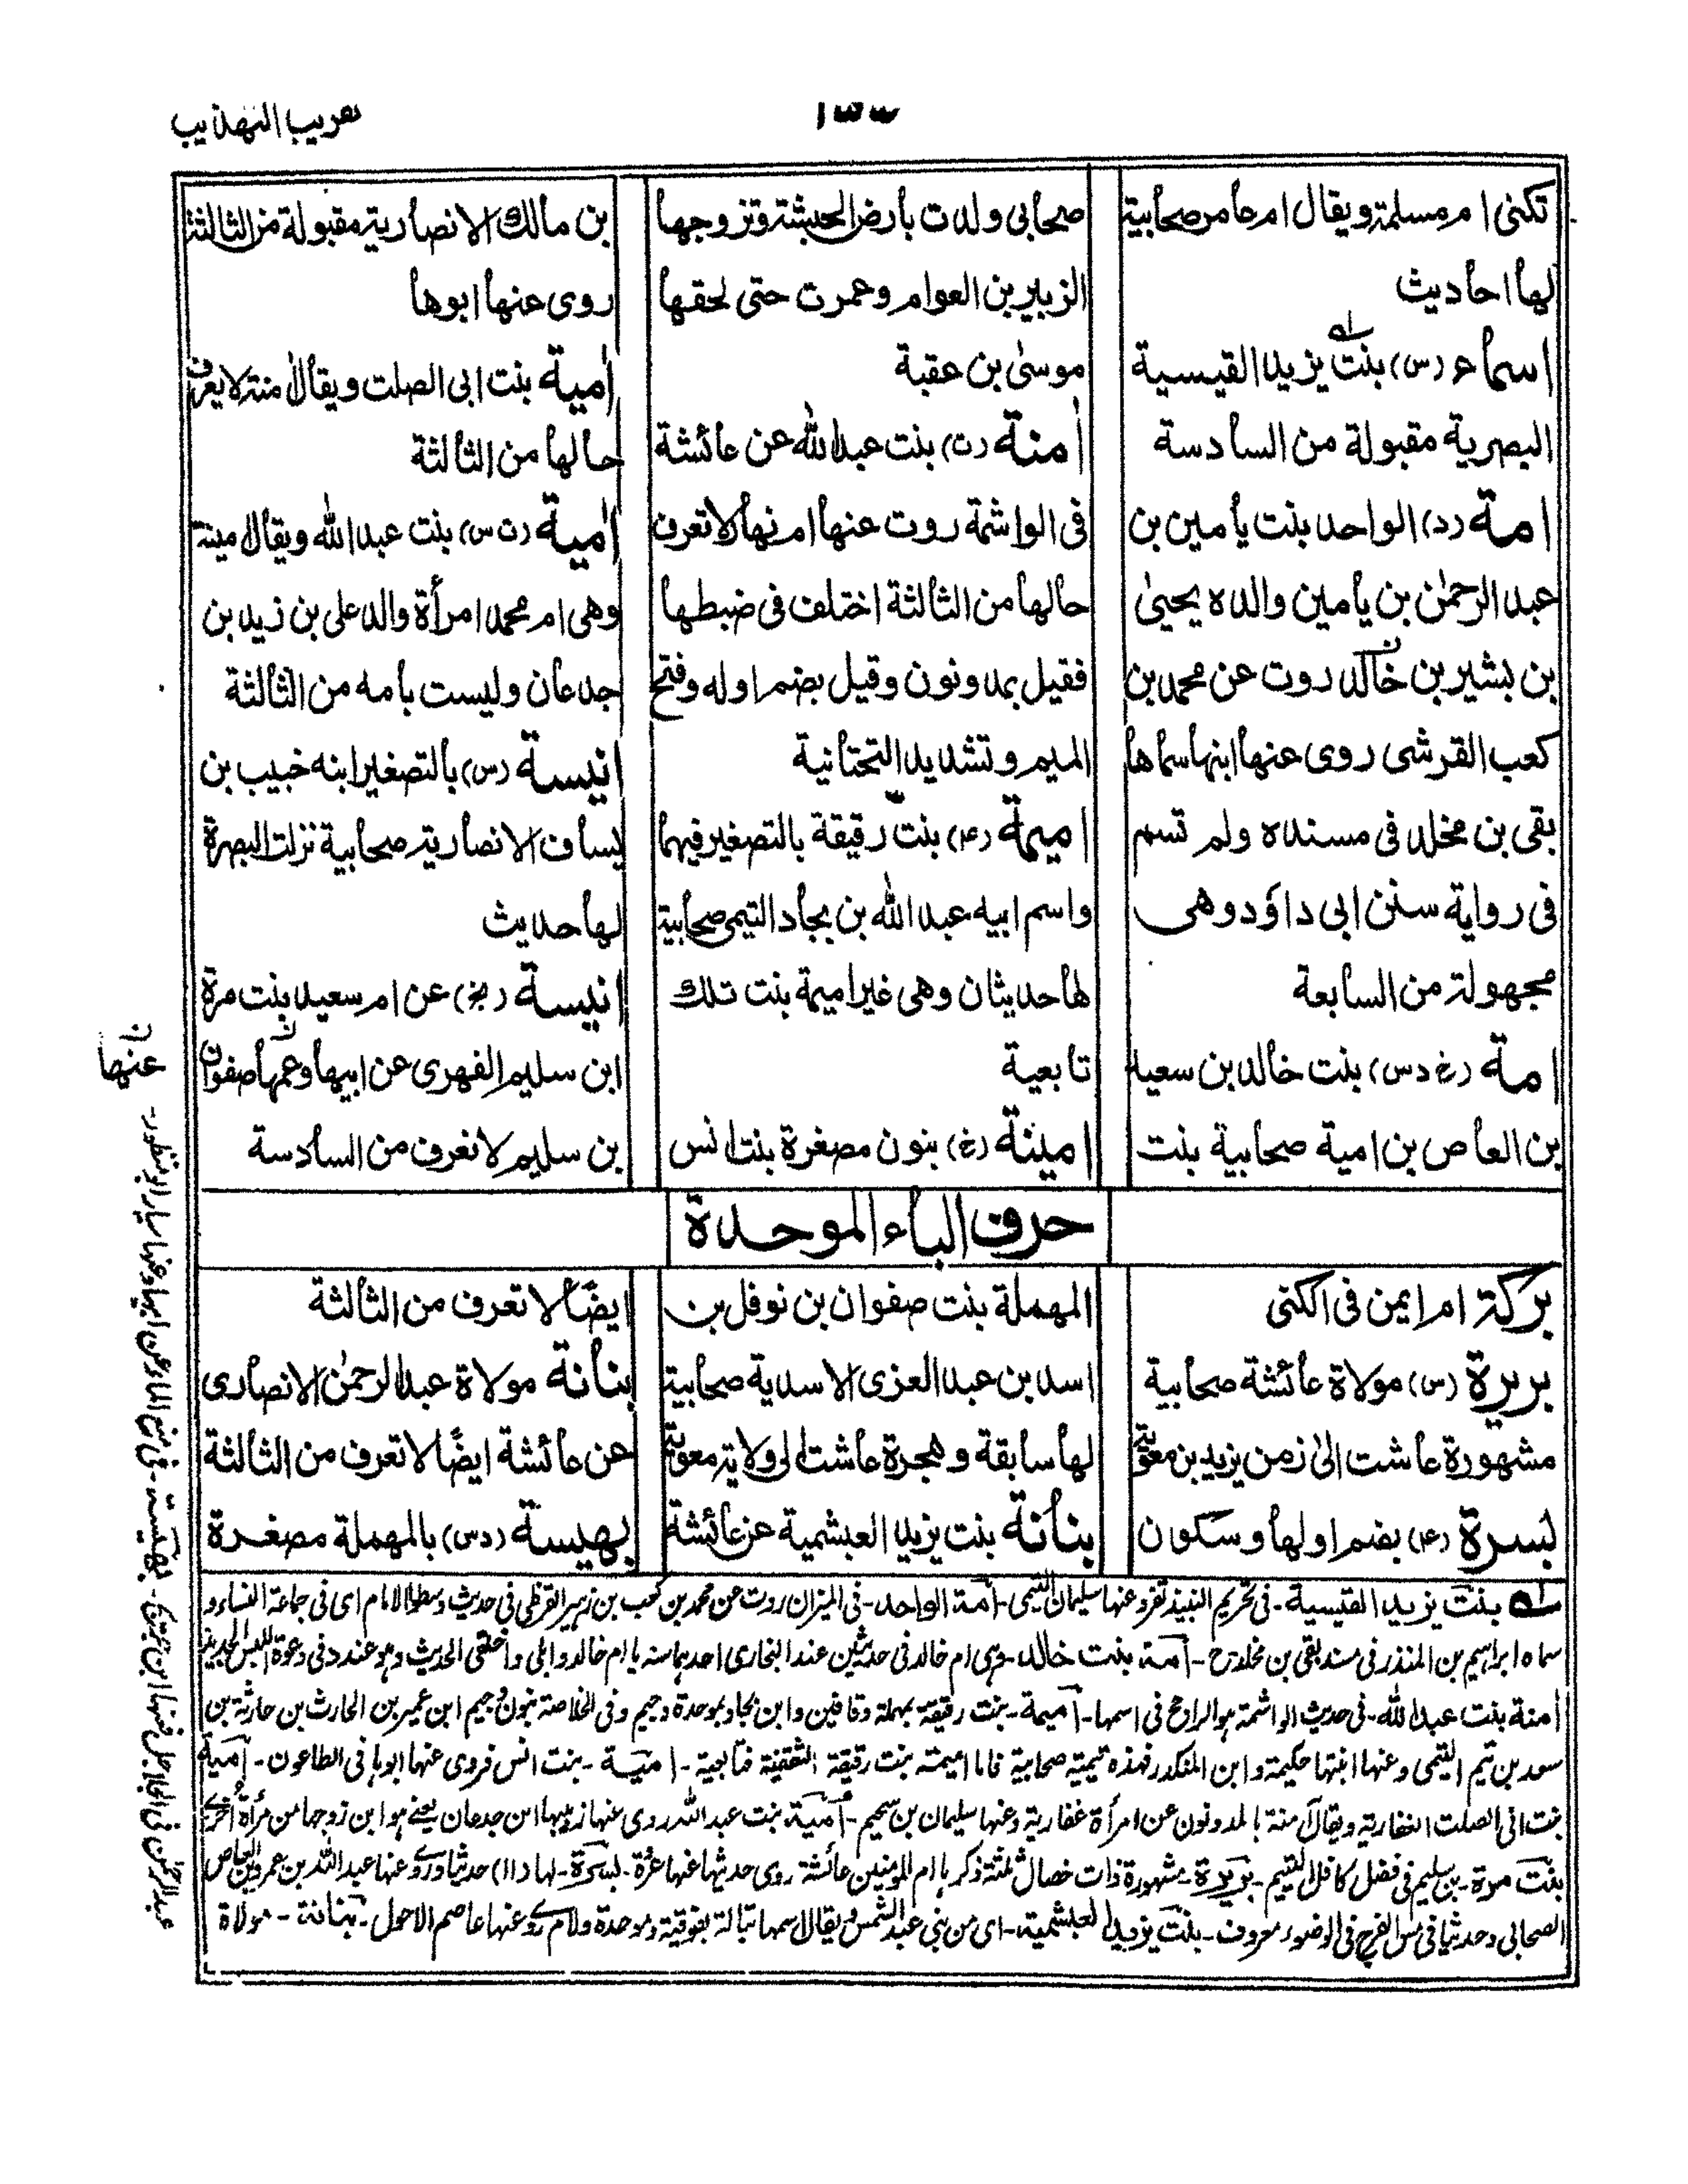 تقريب التهذيب
تكنى ام مسلمة ويقال ام عامر صحابية
لها احاديث
اسماء (س) بنت يزيد القيسية
البصرية مقبولة من السادسة
امة (د) الواحد بنت يامين بن
عبد الرحمٰن بن يامين والده يحيىٰ
بن بشير بن خالد روت عن محمد بن
كعب القرشى روى عنها ابنها سماها
بقى بن مخلد فى مسنده ولم تسم
فى رواية سنن ابى داؤد وهى
مجهولة من السابعة
امة (خ د س) بنت خالد بن سعيد
بن العاص بن امية صحابية بنت
صحابى ولدت بأرض الحبشة وتزوجها
الزبير بن العوام وعمرت حتى لحقها
موسىٰ بن عقبة
اٰمنة (ت) بنت عبد الله عن عائشة
فى الواشمة روت عنها ام نهار لا تعرف
حالها من الثالثة اختلف فى ضبطها
فقيل بمد ونون وقيل بضم اوله وفتح
الميم وتشديد التحتانية
اميمة (۴) بنت رقيقة بالتصغير فيهما
واسم ابيه عبد الله بن بجاد التيمى صحابية
لها حديثان وهى غير اميمة بنت تلك
تابعية
امينة (خ) بنون مصغرة بنت انس
بن مالك الانصارية مقبولة من الثالثة
روى عنها ابوها
اُمية بنت ابى الصلت ويقال اٰمنة لا يعرف
حالها من الثالثة
اُمية (ت س) بنت عبد الله ويقال امينة
وهى ام محمد امرأة والد على بن زيد بن
جدعان وليست بأمه من الثالثة
انيسة (س) بالتصغير ابنه خبيب بن
يساف الانصارية صحابية نزلت البصرة
لها حديث
انيسة (بخ) عن ام سعيد بنت مرة
ابن سليم الفهرى عن ابيها وعمها صفوان
بن سليم لا تعرف من السادسة
حرف الباء الموحدة
بركة ام ايمن فى الكنى
بريرة (س) مولاة عائشة صحابية
مشهورة عاشت الىٰ زمن يزيد بن معٰوية
بسرة (۴) بضم اولها وسكون
المهملة بنت صفوان بن نوفل بن
اسد بن عبد العزى الاسدية صحابية
لها سابقة وهجرة عاشت الى ولاية معٰوية
بنانة بنت يزيد العبشمية عن عائشة
ايضًا لا تعرف من الثالثة
بنانة مولاة عبد الرحمٰن الانصارى
عن عائشة ايضًا لا تعرف من الثالثة
بهيسة (د س) بالمهملة مصغرة
بنت يزيد القيسية - فى تحريم النبيذ تفرد عنها سليمان التيمى - امة الواحد - فى الميزان روت عن محمد بن كعب بن زهير القرظى فى حديث وسطوا الامام اى فى جماعة النساء و
سماه ابراهيم بن المنذر فى مسند بقى بن مخلد - امة بنت خالد - وهى ام خالد فى حديثين عند البخارى احدهما سنه يا ام خالد وابلى واخلقى الحديث وهو عند د فى دعوة اللبس الجديد
اٰمنة بنت عبد الله - فى حديث الواشمة هو الراجح فى اسمها - اميمة - بنت رقيقة بمهملة وقافين وابن بجاد بموحدة وجيم وفى الخلاصة بنون وجيم ابن عمير بن الحارث بن حارثة بن
سعد بن تيم التيمى وعنها ابنتها حكيمة وابن المنكدر فهذه تيمية صحابية فاما اميمة بنت رقيقة الثقفية فتابعية - امينة - بنت انس فروى عنها ابوها فى الطاعون - اُمية
بنت ابى الصلت الغفارية ويقال اٰمنة بالمد ونون عن امرأة غفارية وعنها سليمان بن سحيم - اُمية بنت عبد الله روى عنها ربيبها ابن جدعان يعنى هو ابن زوجها من مرأة اُخرى
بنت مرة - بن سليم فى فضل كافل اليتيم - بريرة - مشهورة ذات خصال ثلثة ذكرها ام المومنين عائشة روى حديثها عنها عروة - بسرة - لها (١١) حديثا وروى عنها عبد الله بن عمرو بن العاص
الصحابى وحديثها فى مس الفرج فى الوضوء معروف - بنت يزيد العبشمية - اى من بنى عبد الشمس ويقال اسمها تبالة بفوقية وموحدة ولام روى عنها عاصم الاحول - بنانة - مولاة
عنها